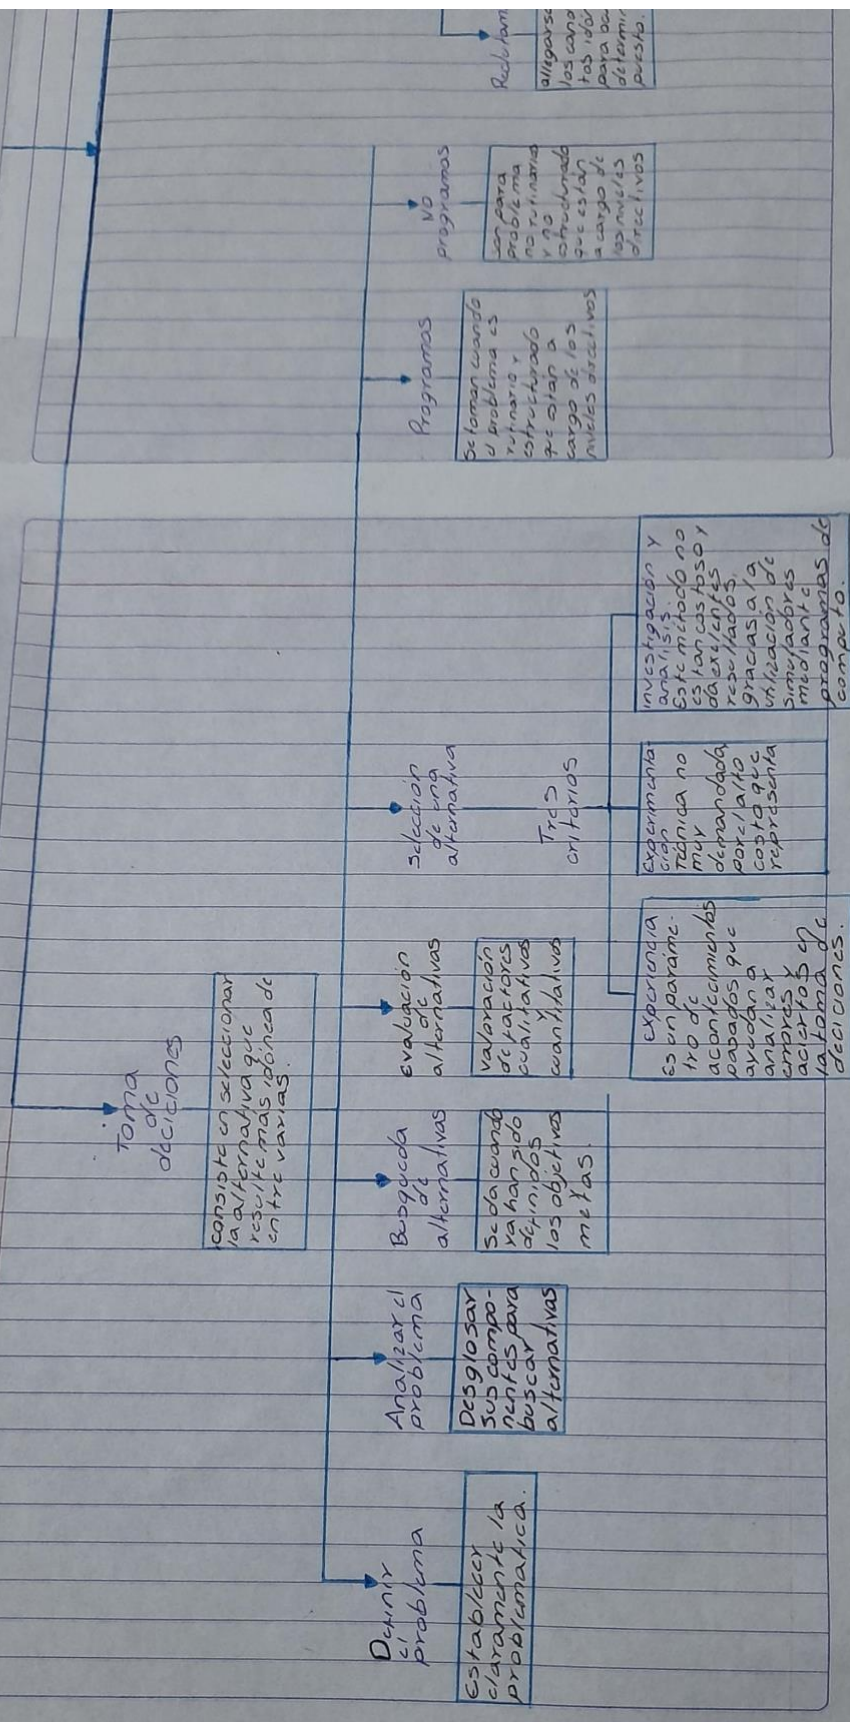 Toma
de
deciciones
consiste en seleccionar
la alternativa que
resulte más idónea de
entre varias.
Definir
el
problema
Establecer
claramente la
problematica.
Analizar el
problema
Desglosar
sus compo-
nentes para
buscar
alternativas
Busqueda
de
alternativas
Se da cuando
ya han sido
definidos
los objetivos
y
metas.
evaluación
de
alternativas
valoración
de factores
cualitativos
y
cuantitativos
Selección
de una
alternativa
Tres
criterios
experiencia
Es un paráme-
tro de
acontecimientos
pasados que
ayudan a
analizar
errores y
aciertos en
la toma de
deciciones.
experimenta-
ción
Técnica no
muy
demandada
por el alto
costo que
representa
investigación y
analisis.
Este método no
es tan costoso y
da exelentes
resultados,
gracias a la
utilización de
simuladores
mediante
programas de
computo.
Programas
Se toman cuando
el problema es
rutinario y
estructurado
que están a
cargo de los
niveles directivos
No
programas
son para
problema
no rutinarios
y no
estructurado
que están
a cargo de
los niveles
directivos
Reclutam
allegarse
los cand
tos idón
para oc
determi
puesto.